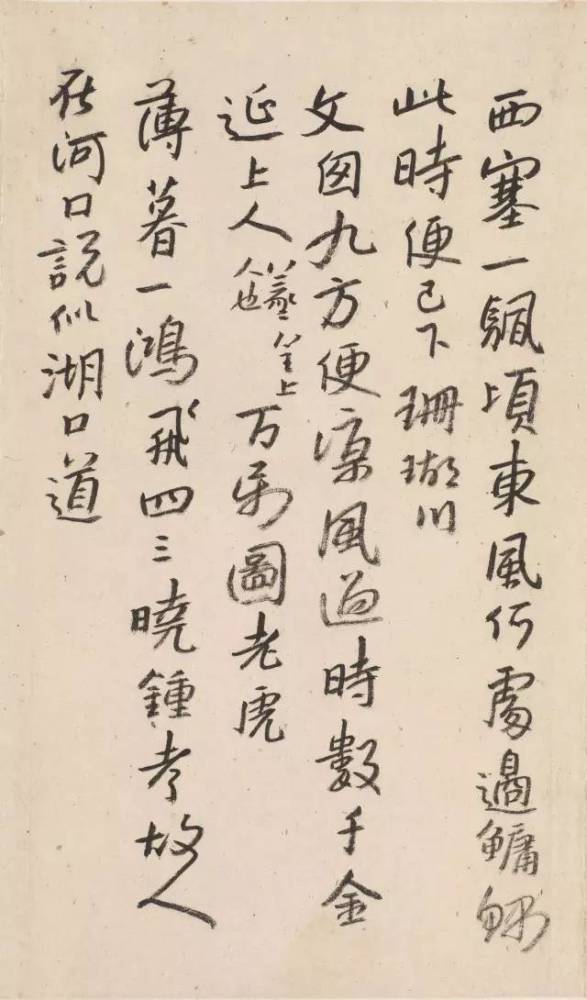 西塞一颿頃東風何處過鱅
此時便已下珊瑚川
文囪九方便涼風過時數千金
延上人羲皇上人也万圖老虎
薄暮一鴻飛四三曉鍾故人
在河口說似湖口道